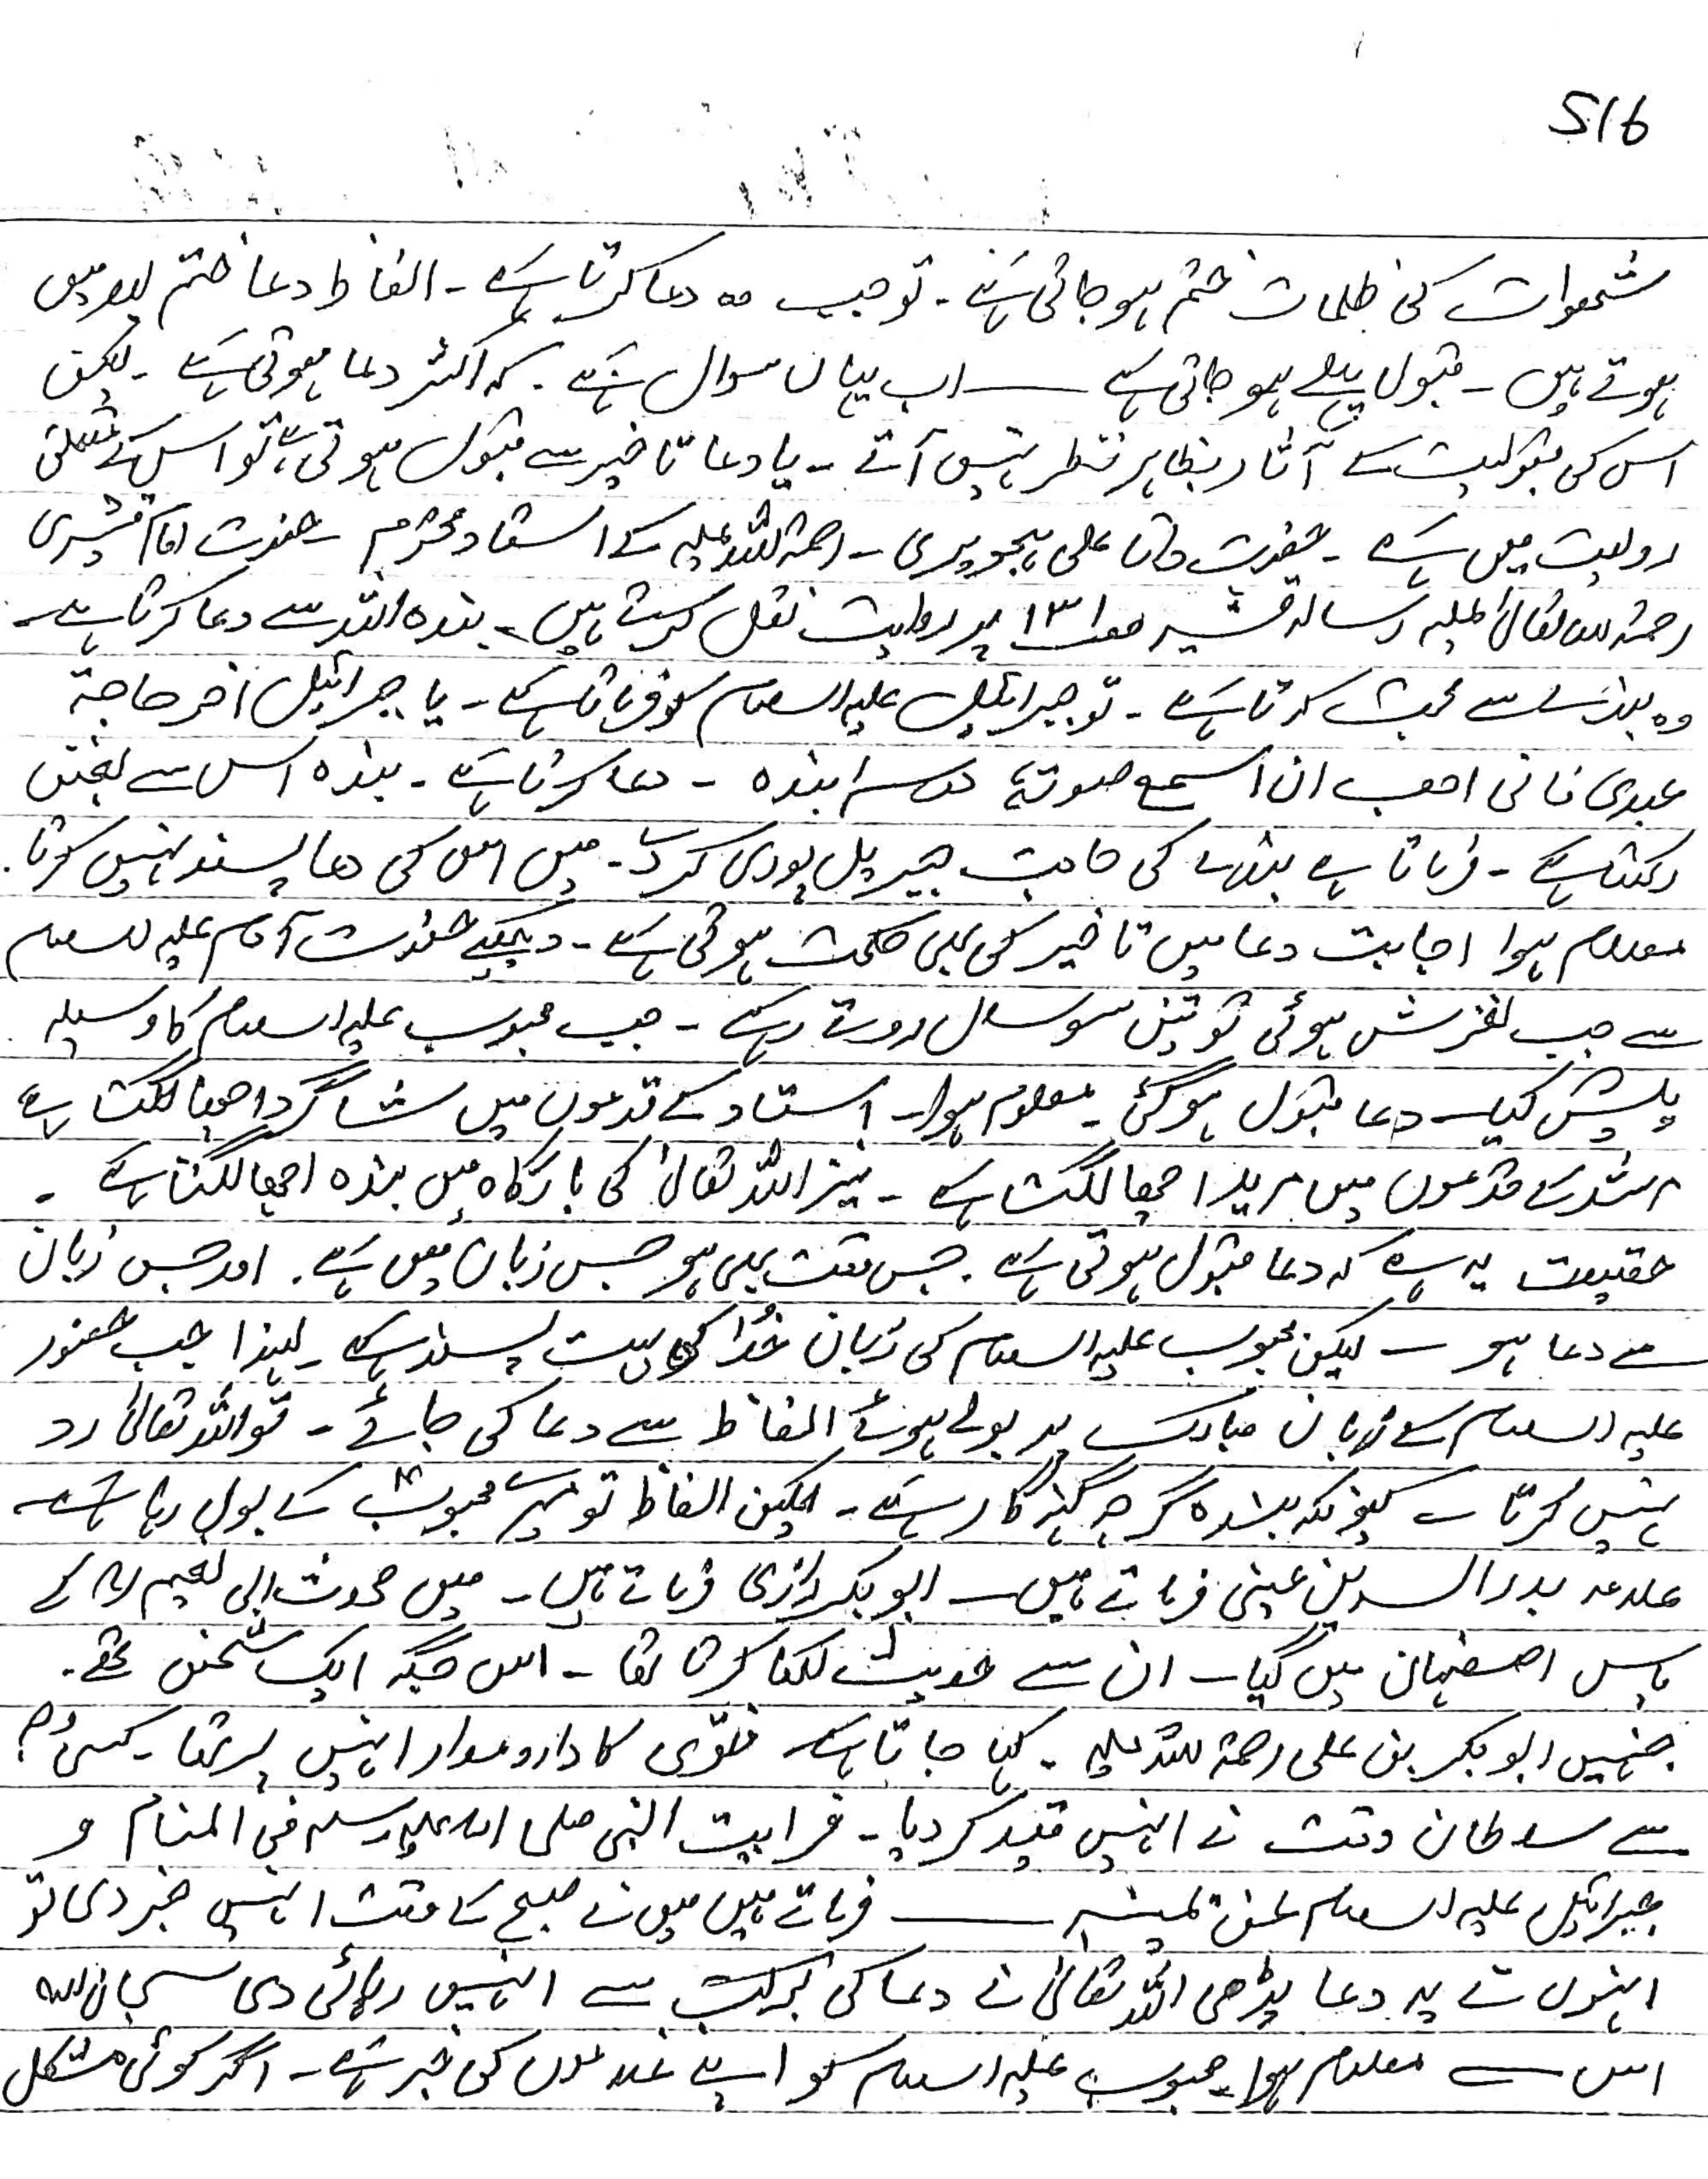 516
شھوات کی ظلمات ختم ہو جاتی ہے ۔ تو جب وہ دعا کرتا ہے ۔ الفاظ دعا ختم بعد میں
ہوتے ہیں ۔ قبول پہلے ہو جاتی ہے ـــ اب یہاں سوال ہے ۔ کہ اکثر دعا ہوتی ہے ۔ لیکن
اس کی قبولیت کے آثار بظاہر نظر نہیں آتے ۔ یا دعا تاخیر سے قبول ہوتی ہے تو اس کے متعلق
روایت میں ہے ۔ حضرت داتا علی ہجویری ۔ رحمۃ اللہ علیہ کے استاد محترم ۔ حضرت امام قشیری
رحمۃ اللہ تعالیٰ علیہ رسالہ قشیر ۱۳۱ پر روایت نقل کرتے ہیں ۔ بندہ اللہ سے دعا کرتا ہے ۔
وہ بندے سے محبت کرتا ہے ۔ تو جبرائیل علیہ السلام کو فرماتا ہے ۔ یا جبرائیل اخر حاجۃ
عبدی فانی احب ان اسمع صوتہ دوسرا بندہ ۔ دعا کرتا ہے ۔ بندہ اس سے بغض
رکھتا ہے ۔ فرماتا ہے بندے کی حاجت جبریل پوری کر دے ۔ میں اس کی دعا پسند نہیں کرتا ۔
معلوم ہوا اجابت دعا میں تاخیر کی بھی حکمت ہوتی ہے ۔ دیکھیے حضرت آدم علیہ السلام
سے جب لغزش ہوئی تو تین سو سال روتے رہے ۔ جب محبوب علیہ السلام کا وسیلہ
پیش کیا ۔ دعا قبول ہو گئی ۔ معلوم ہوا ۔ استاد کے قدموں میں شاگرد اچھا لگتا ہے
مرشد کے قدموں میں مرید اچھا لگتا ہے ۔ نیز اللہ تعالیٰ کی بارگاہ میں بندہ اچھا لگتا ہے ۔
حقیقت یہ ہے کہ دعا قبول ہوتی ہے ۔ جس وقت بھی ہو جس زبان میں ہے ۔ اور جس زبان
سے دعا ہو ۔ لیکن محبوب علیہ السلام کی زبان خدا کو بہت پسند ہے ۔ لہذا جب حضور
علیہ السلام کے زبان مبارک پر بولے ہوئے الفاظ سے دعا کی جائے ۔ تو اللہ تعالیٰ رد
نہیں کرتا ۔ کیونکہ بندہ گرچہ گنہگار ہے ۔ لیکن الفاظ تو میرے محبوب کے بول رہا ہے ۔
علامہ بدر الدین عینی فرماتے ہیں ۔ ابو بکر رازی فرماتے ہیں ۔ میں محدث ابی نعیم کے
پاس اصفہان میں گیا ۔ ان سے حدیث لکھا کرتا تھا ۔ اس جگہ ایک شخص تھے ۔
جنہیں ابو بکر بن علی رحمۃ اللہ علیہ ۔ کہا جاتا ہے ۔ فتوی کا دارومدار انہیں پر تھا ۔ کسی وجہ
سے سلطان وقت نے انہیں قید کر دیا ۔ فرایت النبی صلی اللہ علیہ وسلم فی المنام و
جبرائیل علیہ السلام عن یمینہ ـــــ فرماتے ہیں میں نے صبح کے وقت انہیں خبر دی تو
انہوں نے یہ دعا پڑھی اللہ تعالیٰ نے دعا کی برکت سے انہیں رہائی دی سبحان اللہ
اس سے معلوم ہوا ۔ محبوب علیہ السلام کو اپنے غلاموں کی خبر ہے ۔ اگر کوئی مشکل